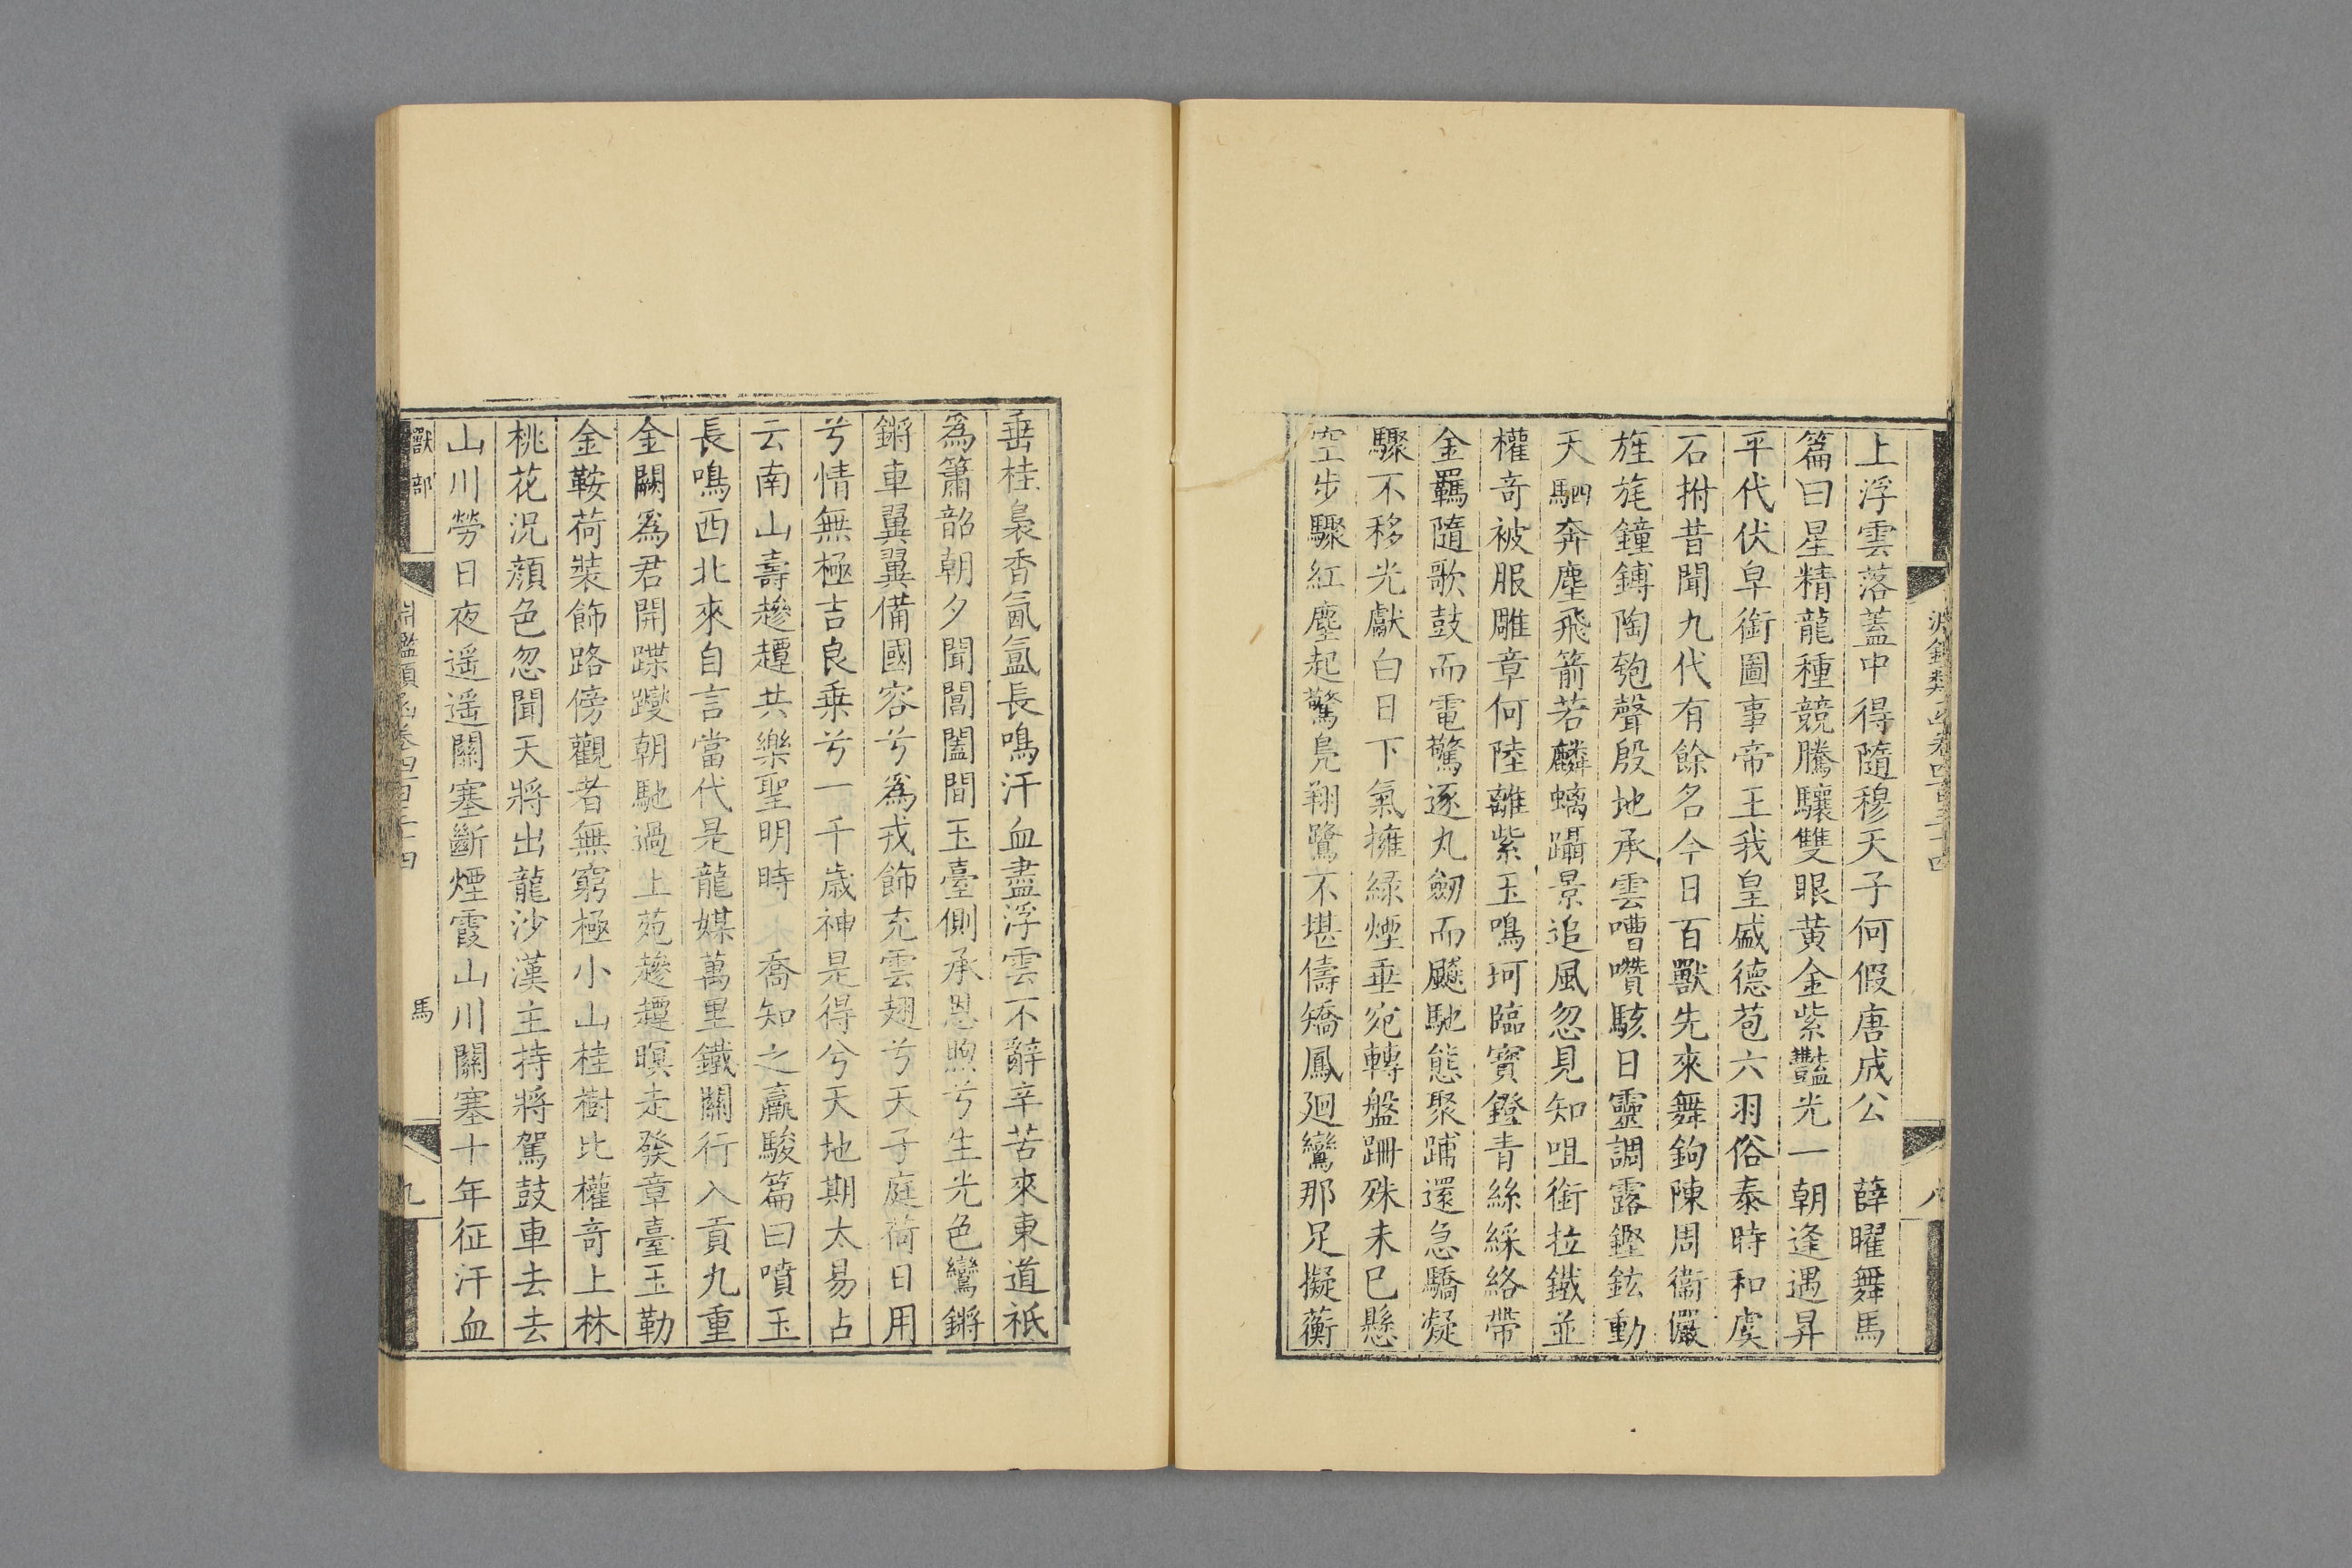 上浮雲落蓋中得隨穆天子何假唐成公　薛曜舞馬
篇曰星精龍種競騰驤雙眼黃金紫豔光一朝逢遇昇
平代伏皁銜圖事帝王我皇盛德苞六羽俗泰時和虞
石拊昔聞九代有餘名今日百獸先來舞鉤陳周衞儼
旌旄鐘鎛陶匏聲殷地承雲嘈囋駭日靈調露鏗鉉動
天駟奔塵飛箭若麟螭躡景追風忽見知咀銜拉鐵並
權奇被服雕章何陸離紫玉鳴珂臨寶鐙青絲綵絡帶
金羈隨歌鼓而電驚逐丸劒而飈馳態聚䠙還急驕凝
驟不移光獻白日下氣擁綠煙垂宛轉盤跚殊未已懸
空步驟紅塵起驚鳧翔鷺不堪儔矯鳳廻鸞那足擬蘅
垂桂裊香氤氳長鳴汗血盡浮雲不辭辛苦來東道祗
爲簫韶朝夕聞閶闔間玉臺側承恩煦兮生光色鸞鏘
鏘車翼翼備國容兮爲戎飾充雲翹兮天子庭荷日用
兮情無極吉良乗兮一千歳神是得兮天地期太易占
云南山壽趁䟃共樂聖明時　喬知之羸駿篇曰噴玉
長鳴西北來自言當代是龍媒萬里鐵關行入貢九重
金闕爲君開蹀躞朝馳過上苑趁䟃暝走發章臺玉勒
金鞍荷裝飾路傍觀者無窮極小山桂樹比權奇上林
桃花況顏色忽聞天將出龍沙漢主持將駕鼓車去去
山川勞日夜遥遥關塞斷煙霞山川關塞十年征汗血
獸部　淵鑑類函卷四百三十四　馬　九